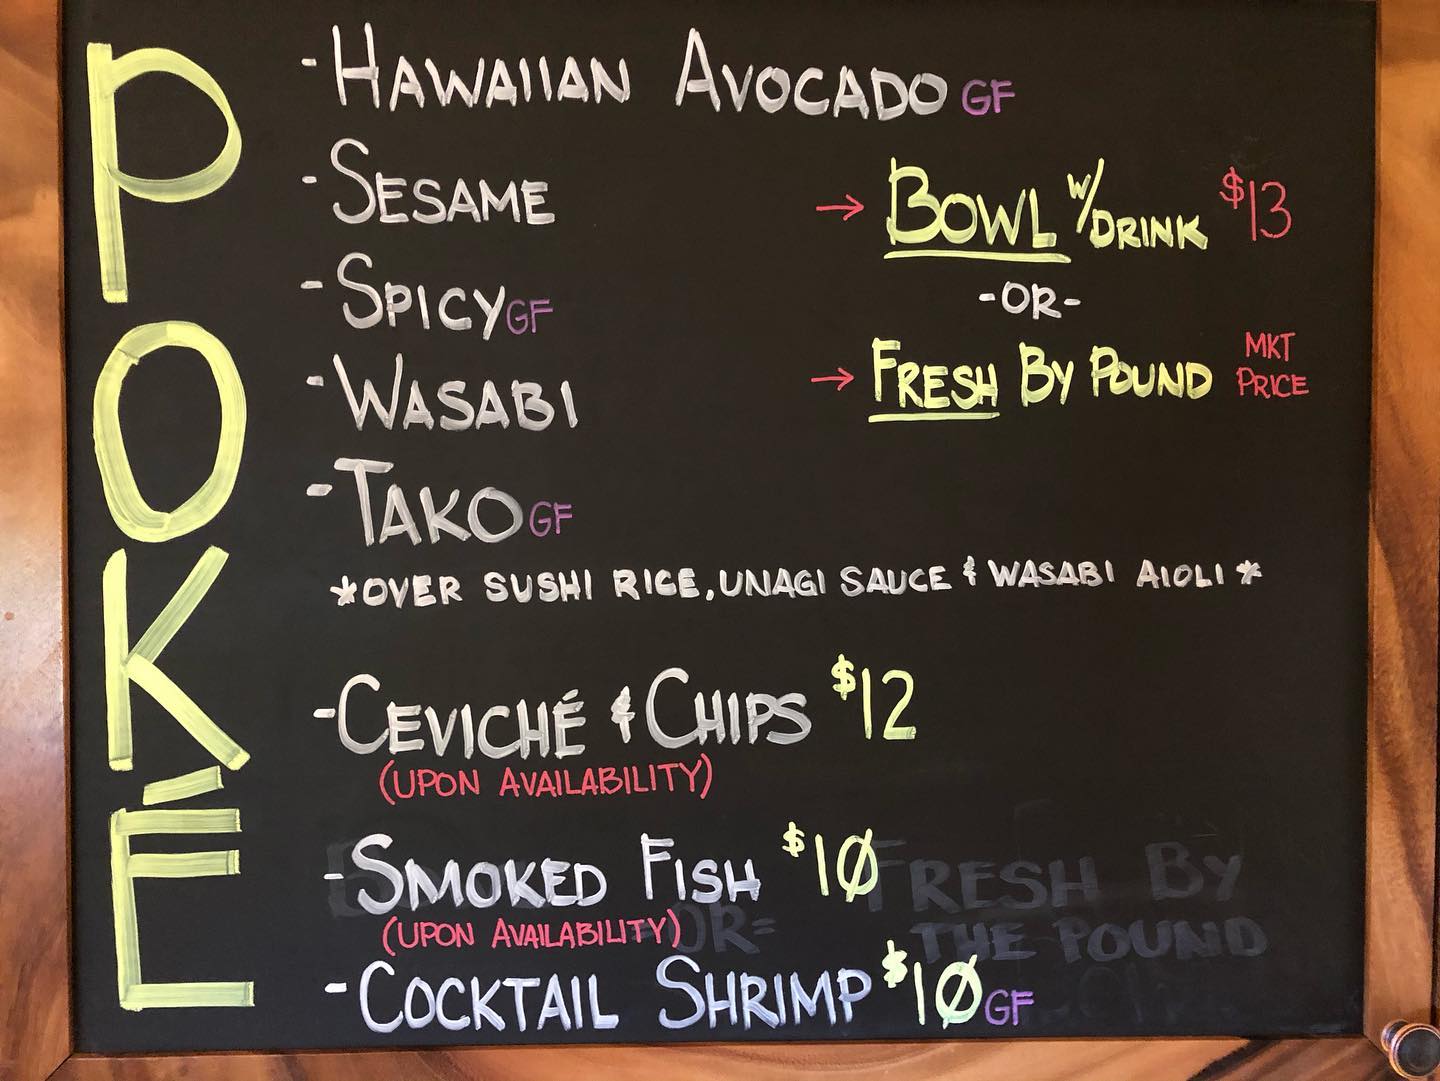 POKÉ
-HAWAIIAN AVOCADO GF
-SESAME
→ BOWL W/DRINK $13
-SPICY GF
-OR-
-WASABI
→ FRESH BY POUND MKT PRICE
-TAKO GF
*OVER SUSHI RICE, UNAGI SAUCE & WASABI AIOLI*
-CEVICHÉ & CHIPS $12
(UPON AVAILABILITY)
-SMOKED FISH $10
FRESH BY
(UPON AVAILABILITY)
-OR-
THE POUND
-COCKTAIL SHRIMP $10 GF